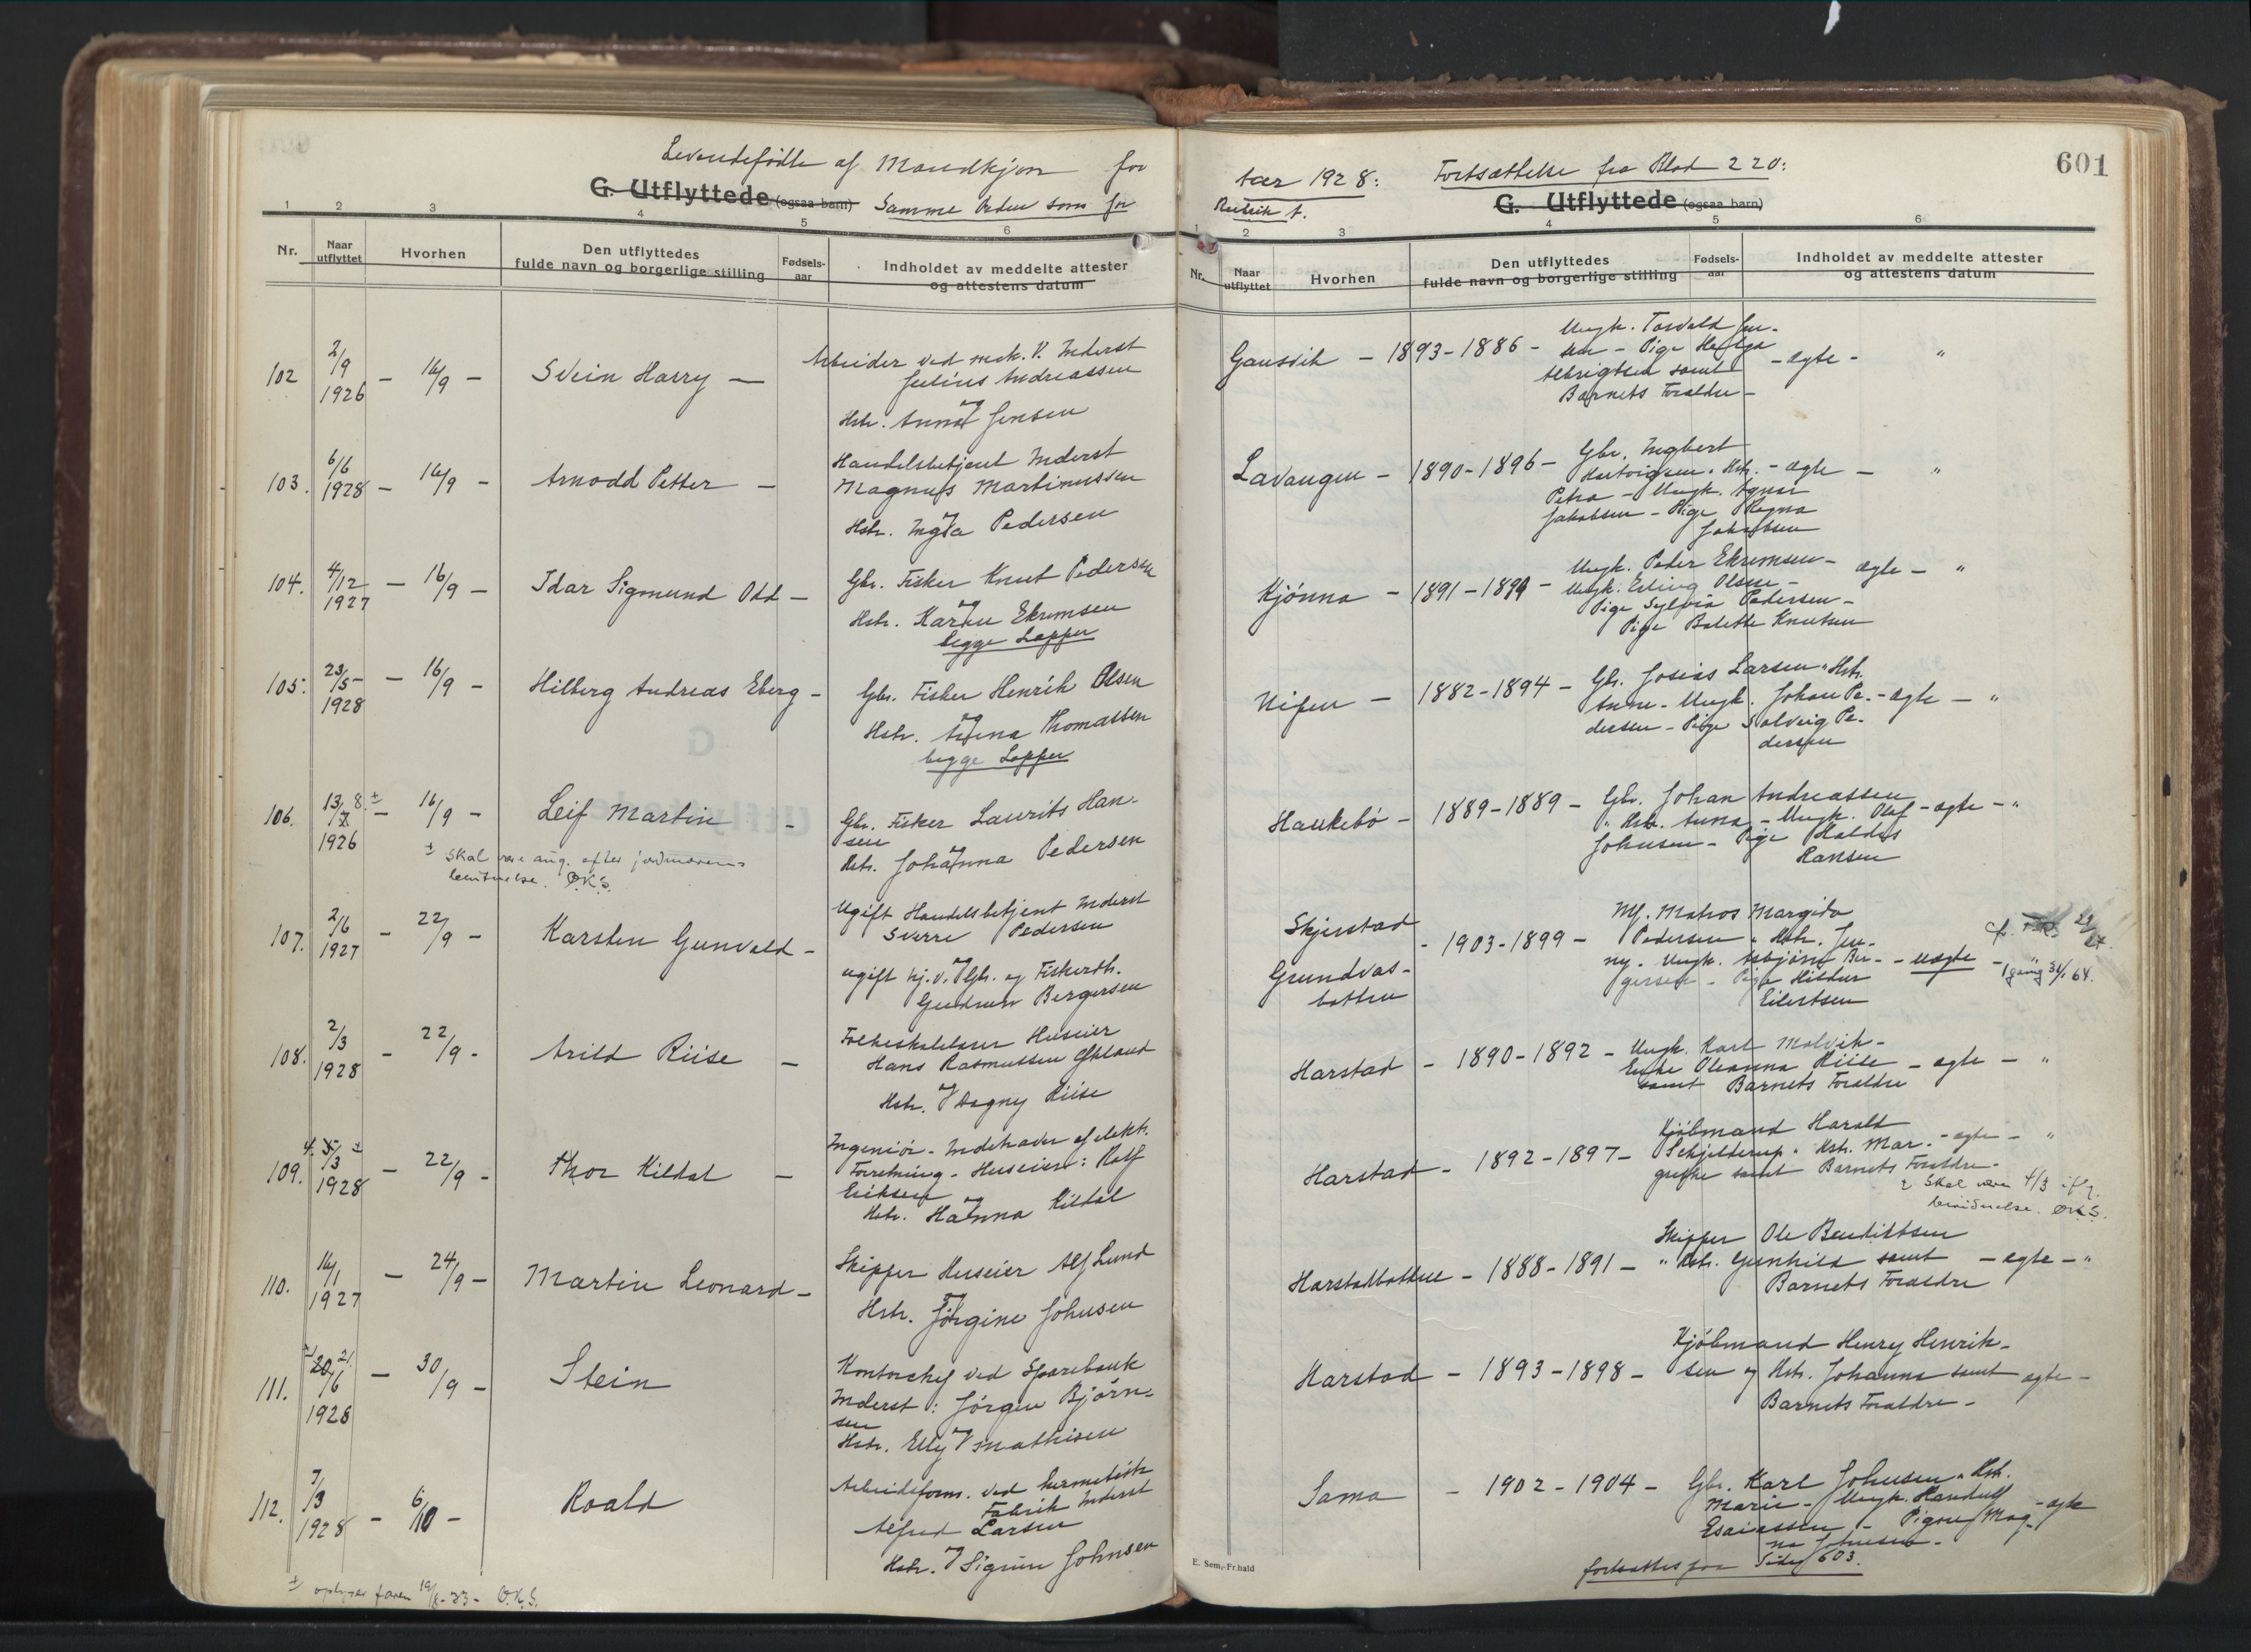 Levendefødte af Mandkjøn for
G. Utflyttede (ogsaa barn) Samme Orden som for
1 2 3 4 5 6
Nr.
Naar utflyttet
Hvorhen
Den utflyttedes
fulde navn og borgerlige stilling
Fødsels-
aar
Indholdet av meddelte attester
og attestens datum
102 2/9 1926 – 16/9 – Svein Harry —
Arbeider ved mek. V. Inderst
Julius Andreassen
og
Hstr. Anna Jensen
103. 6/6 1928 – 16/9 – Arnodd Petter –
Handelsbetjent Inderst
Magnus Martinussen
og
Hstr. Inga Pedersen
104. 4/12 1927 – 16/9 – Idar Sigmund Odd –
Gbr. Fisker Knut Pedersen
og
Hstr. Karen Ekremsen
begge Lapper
105. 23/5 1928 – 16/9 – Hilberg Andreas Eberg –
Gbr. Fisker Henrik Olsen
og
Hstr. Anna Thomassen
begge Lapper
106. 13/7 8. ± 1926 – 16/9 – Leif Martin –
± Skal være aug. efter jordmorens
bevitnelse. O.K.S.
Gbr. Fisker Laurits Han-
sen
og
Hstr. Johanna Pedersen
107. 2/6 1927 – 22/9 – Karsten Gunvald –
Ugift Handelsbetjent Inderst
Sverre Pedersen
og
ugift hj.v. Gbr. og Fiskerth.
Gudrun Bergersen
108. 2/3 1928 – 22/9 – Arild Riise –
Folkeskolelærer Huseier
Hans Rasmussen
og
Hstr. Dagny Riise
109. 4. 5/3 ± 1928 – 22/9 – Thor Kildal –
Ingeniør – Indehaver af elekt.
Forretning – Huseier: Rolf
Eriksen
og
Hstr. Hanna Kildal
110. 16/1 1927 – 24/9 – Martin Leonard –
Skipper Huseier Alf Lund
og
Hstr. Jørgine Johnsen
111. ± 20 21. /6 1928 – 30/9 – Stein
Kontorchef ved Sparebank
Inderst: Jørgen Bjørn-
sen
og
Hstr. Elly Mathisen
112. 7/3 1928 – 6/10 – Roald
Arbeidsform. ved hermetisk
Fabrik Inderst
Alfred Larsen
og
Hstr. Sigrun Johnsen
± oplyser faren 19/8-33 – O.K.S.
601
aar 1928: Fortsættelse fra Blad 220:
Rubrik A.
G. Utflyttede (ogsaa barn)
1 2 3 4 5 6
Nr.
Naar
utflyttet
Hvorhen
Den utflyttedes
fulde navn og borgerlige stilling
Fødsels-
aar
Indholdet av meddelte attester
og attestens datum
Gausvik – 1893–1886 –
Ungk. Torvald Jen-
sen – Pige Helga
Albrigtsen samt – ægte – "
Barnets Forældre –
Lavangen – 1890–1896 –
Gbr. Ingbert
Hartvigsen " Hstr. – ægte – "
Petra – Ungk. Agnar
Jakobsen – Pige Magna
Jakobsen
Kjønna – 1891–1899 –
Ungk. Peder Ekremsen – ægte – "
Ungk. Erling Olsen –
Pige Sylvia Pedersen –
Pige Balette Knutsen
Nipen – 1882–1894 –
Gbr. Josias Larsen " Hstr.
Anne – Ungk. Johan Pe- – ægte – "
dersen – Pige Solveig Pe-
dersen
Haukebø – 1889–1889 –
Gbr. Johan Andreassen
" Hstr. Anna – Ungk. Olaf – ægte – "
Johnsen – Pige Haldis
Hansen
Skjerstad
Grundvas-
botten
– 1903–1899 –
Uf. Matros Margido
Pedersen " Hstr. Jen-
ny – Ungk. Asbjørn Ber- – uægte –
gersen – Pige Hildur
Eilertsen
Harstad – 1890–1892 –
Ungk. Karl Molvik –
Enke Oleanna Riise – ægte – "
samt Barnets Forældre
Harstad – 1892–1897 –
Kjøbmand Harald
Schjelderup " Hstr. Mar- – ægte – "
grethe samt Barnets Forældre –
± Skal være 4/3 iflg.
bevidnelse. O.K.S.
Harstadbotten – 1888–1891 –
Skipper Ole Bendiktsen
" Hstr. Gunhild samt – ægte – "
Barnets Forældre
Harstad – 1893–1898 –
Kjøbmand Henry Henrik-
sen og Hstr. Johanna samt ægte –
Barnets Forældre –
Sama – 1902–1904 –
Gbr. Karl Johnsen " Hstr.
Marie – Ungk. Handulf – ægte
Esaiassen – Pigen Mag-
na Johnsen –
fortsættes paa Side 603.
E. Sem,-Fr.hald